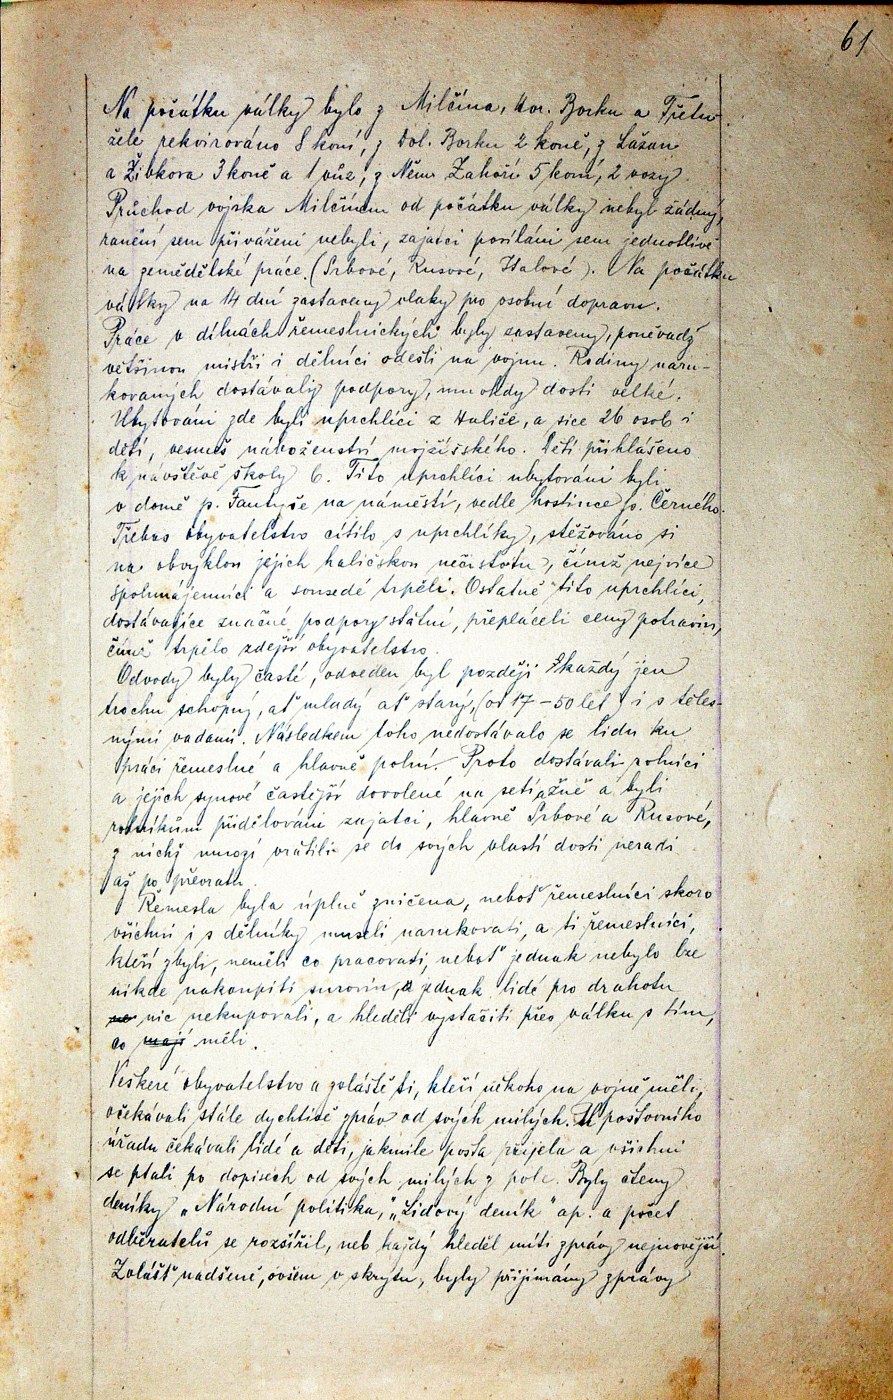 61
Na počátku války bylo z Milčína, Hor. Borku a Třetu-
žele rekvirováno 8 koní, z Dol. Borku 2 koně, z Lažan
a Žibkova 3 koně a 1 vůz, z Něm. Zahoří 5 koní, 2 vozy.
Průchod vojska Milčínem od počátku války nebyl žádný,
ranění sem přiváženi nebyli, zajatci posíláni sem jednotlivě
na zemědělské práce (Srbové, Rusové, Italové). Na počátku
války na 14 dní zastaveny vlaky pro osobní dopravu.
Práce v dílnách řemeslnických byly zastaveny, poněvadž
většinou mistři i dělníci odešli na vojnu. Rodiny naru-
kovaných dostávaly podpory, mnohdy dosti velké.
Ubytováni zde byli uprchlíci z Haliče, a sice 26 osob i
dětí, vesměs náboženství mojžíšského. Dětí přihlášeno
k návštěvě školy 6. Tito uprchlíci ubytováni byli
v domě p. Fantyše na náměstí, vedle hostince p. Černého.
Třebas obyvatelstvo cítilo s uprchlíky, stěžováno si
na obvyklou jejich haličskou nečistotu, čímž nejvíce
spolunájemníci a sousedé trpěli. Ostatně tito uprchlíci,
dostávajíce značné podpory státní, přepláceli ceny potravin,
čímž trpělo zdejší obyvatelstvo.
Odvody byly časté, odveden byl později každý jen
trochu schopný, ať mladý ať starý, (od 17–50 let) i s těles-
nými vadami. Následkem toho nedostávalo se lidu ku
práci řemeslné a hlavně polní. Proto dostávali rolníci
a jejich synové častější dovolené na setí, žně a byli
rolníkům přidělováni zajatci, hlavně Srbové a Rusové,
z nichž mnozí vrátili se do svých vlastí dosti neradi
až po převratu.
Řemesla byla úplně zničena, neboť řemeslníci skoro
všichni i s dělníky museli narukovati, a ti řemeslníci,
kteří zbyli, neměli co pracovati, neboť jednak nebylo lze
nikde nakoupiti surovin, a jednak lidé pro drahotu
ne nic nekupovali, a hleděli vystačiti přes válku s tím,
co mají měli.
Veškeré obyvatelstvo a zvláště ti, kteří někoho na vojně měli,
očekávali stále dychtivě zpráv od svých milých. U poštovního
úřadu čekávali lidé a děti, jakmile pošta přijela a všichni
se ptali po dopisech od svých milých z pole. Byly čteny
deníky „Národní politika," „Lidový deník" ap. a počet
odběratelů se rozšířil, neb každý hleděl míti zprávy nejnovější.
Zvlášť nadšeně, ovšem v skrytu, byly přijímány zprávy